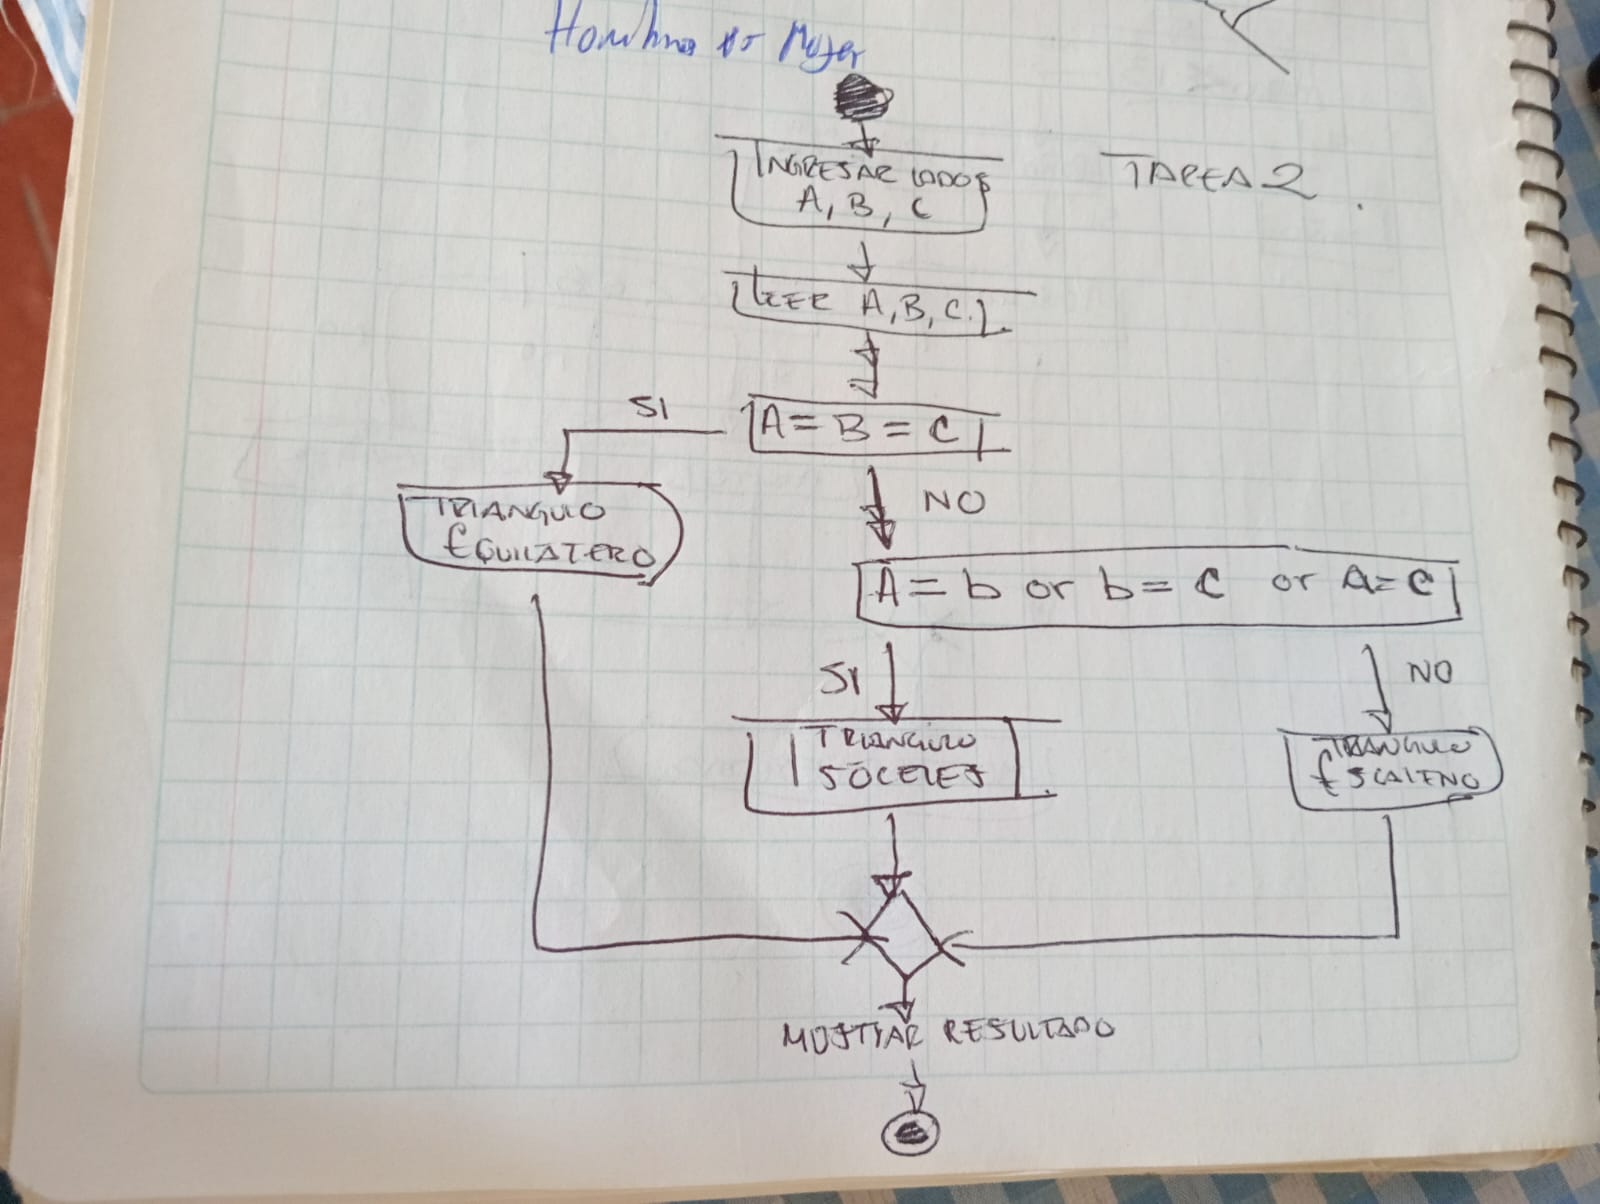 Mujer
INGRESAR LADOS
A, B, C
TAREA 2.
LEER A, B, C.
SI
A = B = C
NO
TRIANGULO
EQUILATERO
A = b or b = C or A = C
SI
NO
TRIANGULO
ISOCELES
TRIANGULO
ESCALENO
MOSTRAR RESULTADO